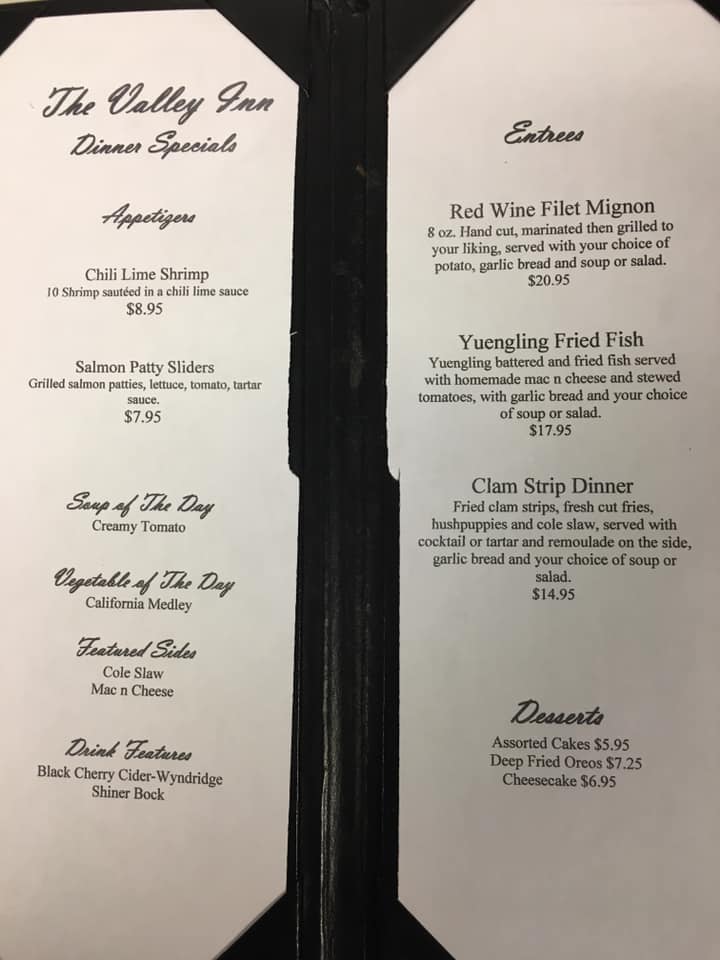 The Valley Inn
Dinner Specials
Appetizers
Chili Lime Shrimp
10 Shrimp sautéed in a chili lime sauce
$8.95
Salmon Patty Sliders
Grilled salmon patties, lettuce, tomato, tartar
sauce.
$7.95
Soup of The Day
Creamy Tomato
Vegetable of The Day
California Medley
Featured Sides
Cole Slaw
Mac n Cheese
Drink Features
Black Cherry Cider-Wyndridge
Shiner Bock
Entrees
Red Wine Filet Mignon
8 oz. Hand cut, marinated then grilled to
your liking, served with your choice of
potato, garlic bread and soup or salad.
$20.95
Yuengling Fried Fish
Yuengling battered and fried fish served
with homemade mac n cheese and stewed
tomatoes, with garlic bread and your choice
of soup or salad.
$17.95
Clam Strip Dinner
Fried clam strips, fresh cut fries,
hushpuppies and cole slaw, served with
cocktail or tartar and remoulade on the side,
garlic bread and your choice of soup or
salad.
$14.95
Desserts
Assorted Cakes $5.95
Deep Fried Oreos $7.25
Cheesecake $6.95